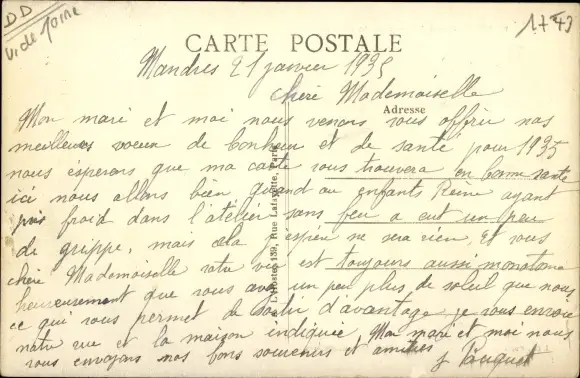 DD
V. de Loire
1743
CARTE POSTALE
Mandres 21 janvier 1935
chère Mademoiselle
Adresse
Mon mari et moi nous venons vous offrir nos
meilleures voeux de bonheur et de santé pour 1935
nous espérons que ma carte vous trouvera en bonne santé
ici nous allons bien quand au enfants Reine ayant
pris froid dans l'atelier sans feu a eut un peu
de grippe, mais cela j'espère ne sera rien. Et vous
chère Mademoiselle votre vie est toujours aussi monotone
heureusement que vous avez un peu plus de soleil que nous
ce qui vous permet de sortir d'avantage je vous envoie
notre rue et la maison indiquée Mon mari et moi nous
vous envoyons nos bons souvenirs et amitiés
J Pauquet
L'Hoste, 139, Rue Lafayette, Paris